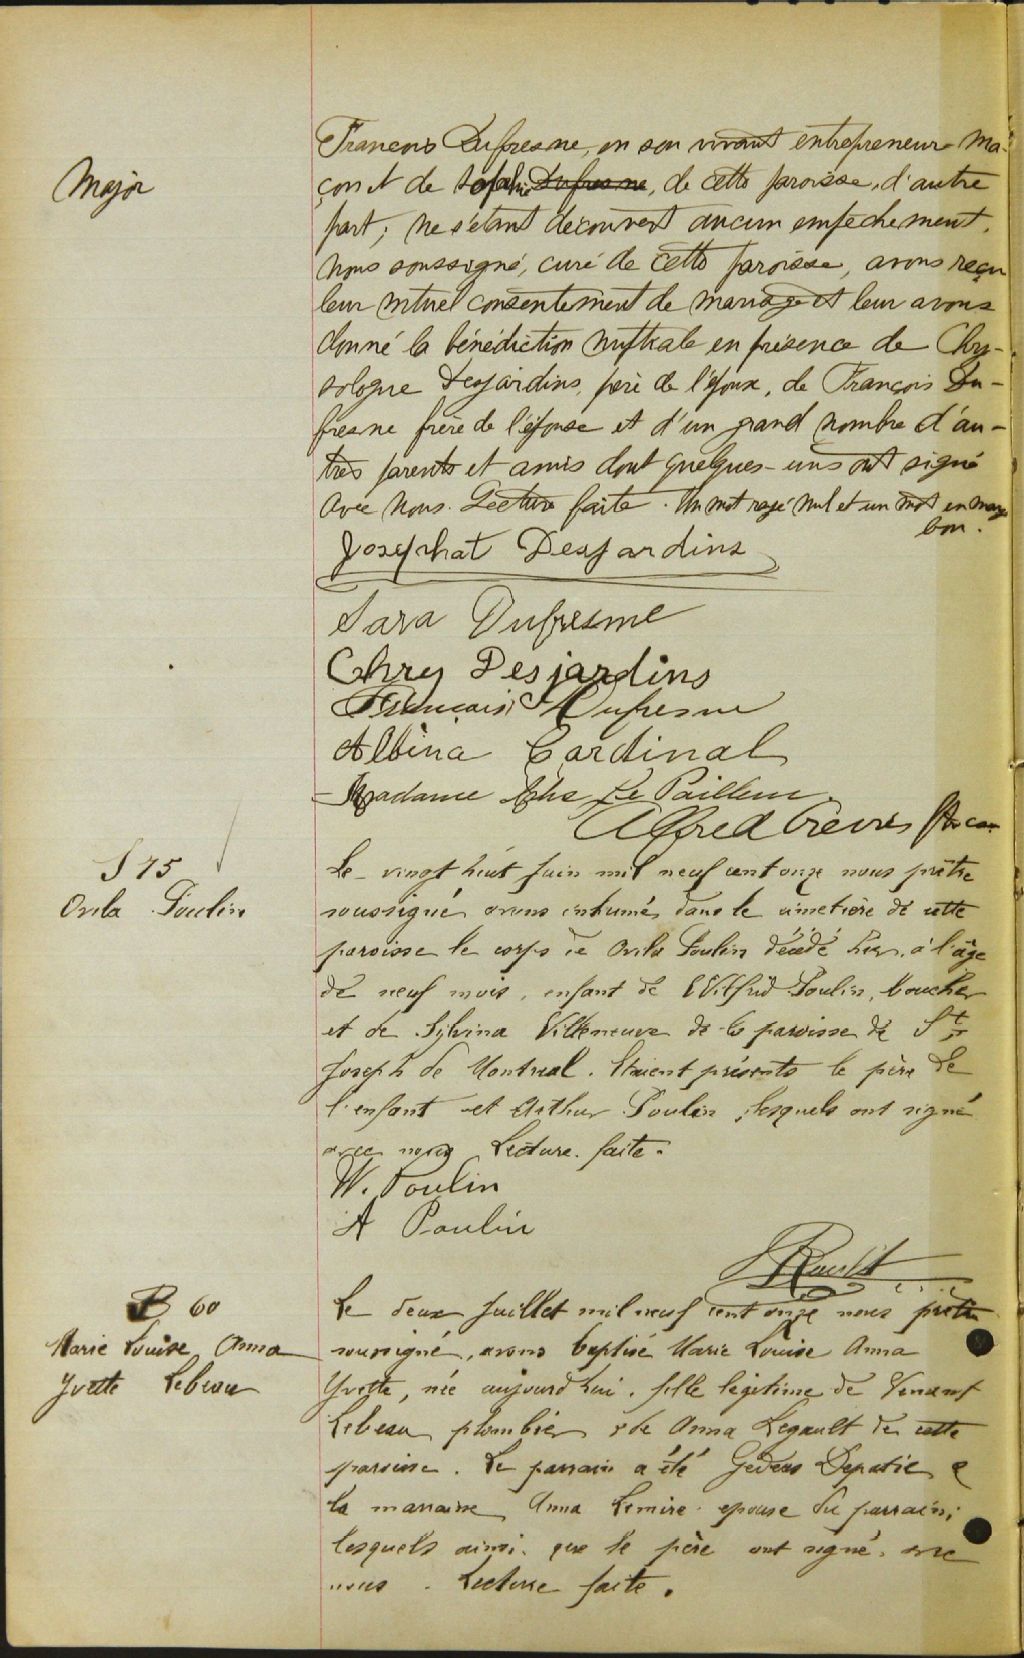 Major
François Dufresne, en son vivant entrepreneur-ma-
çon et de Sophie Dufresne, de cette paroisse, d'autre
part; ne s'étant découvert aucun empêchement,
nous soussigné, curé de cette paroisse, avons reçu
leur mtuel consentement de mariage et leur avons
donné la bénédiction nuptiale en présence de Chry-
sologue Desjardins, père de l'époux, de François Du-
fresne frère de l'épouse et d'un grand nombre d'au-
tres parents et amis dont quelques-uns ont signé
avec nous. Lecture faite. Un mot rayé nul et un mot en marge
bon.
Josephat Desjardins
Sara Dufresne
Chry Desjardins
François Dufresne
Albina Cardinal
Madame Le Pailleur
Alfred
S 75
Ovila Poulin
Le vingt huit juin mil neuf cent onze nous prêtre
soussigné avons inhumé dans le cimetière de cette
paroisse le corps de Ovila Poulin décédé hier, à l'âge
de neuf mois, enfant de Wilfrid Poulin, boucher
et de Sylvina Villeneuve de la paroisse de St
Joseph de Montreal. Etaient présents le père de
l'enfant et Arthur Poulin, lesquels ont signé
avec nous Lecture faite.
W. Poulin
A Poulin
B 60
Marie Louise Anna
Yvette Lebeau
Le deux juillet mil neuf cent onze nous prêtre
soussigné, avons baptisé Marie Louise Anna
Yvette, née aujourd'hui, fille légitime de Venant
Lebeau plombier & de Anna Legault de cette
paroisse. Le parrain a été Gédéon Depatie &
la marraine Anna Lemire epouse du parrain;
lesquels ainsi que le père ont signé avec
nous. Lecture faite.